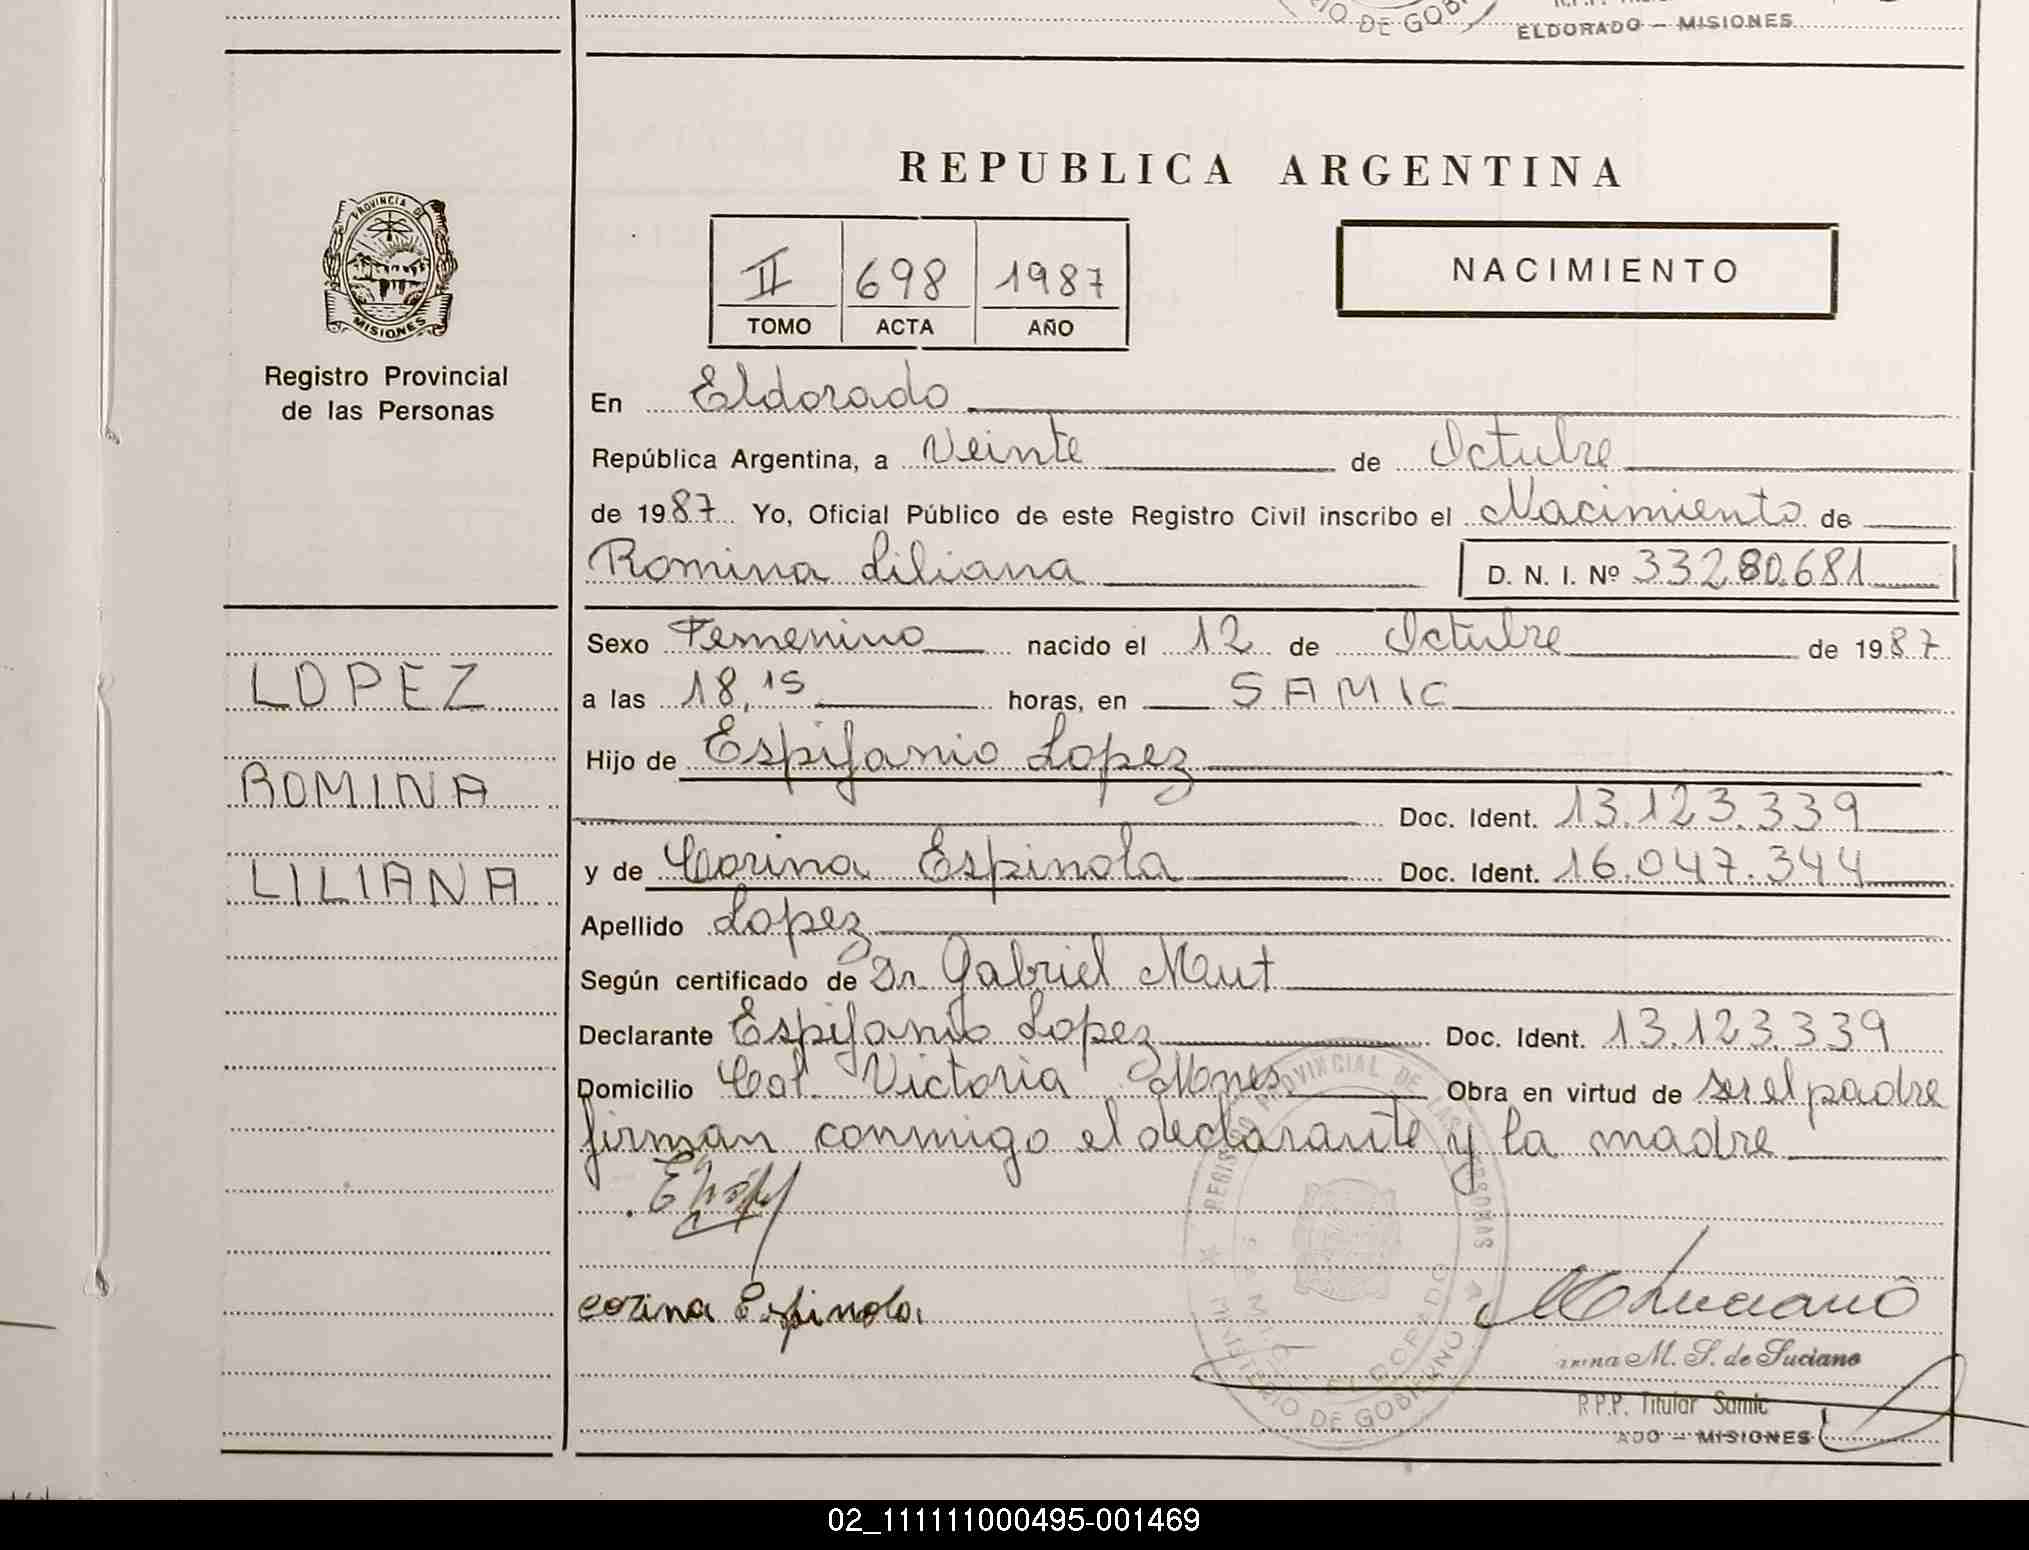 DE GOB
ELDORADO - MISIONES
PROVINCIA DE
MISIONES
Registro Provincial
de las Personas
REPUBLICA ARGENTINA
II 698 1987
TOMO ACTA AÑO
NACIMIENTO
En Eldorado
República Argentina, a Veinte de Octubre
de 1987 Yo, Oficial Público de este Registro Civil inscribo el Nacimiento de
Romina Liliana D. N. I. Nº 33280.681
LOPEZ
ROMINA
LILIANA
Sexo Femenino nacido el 12 de Octubre de 1987
a las 18,15 horas, en SAMIC
Hijo de Espifanio Lopez
Doc. Ident. 13.123.339
y de Corina Espinola Doc. Ident. 16.047.344
Apellido Lopez
Según certificado de Dr Gabriel Mut
Declarante Espifanio Lopez Doc. Ident. 13.123.339
Domicilio Col. Victoria Mnes Obra en virtud de ser el padre
firman conmigo el declarante y la madre
corina Espinola
REGISTRO PROVINCIAL DE LAS PERSONAS
SAMIC ELDORADO
MINISTERIO DE GOBIERNO
M. S. de Luciano
R.P.P. Titular Samic
ADO - MISIONES
02_111111000495-001469